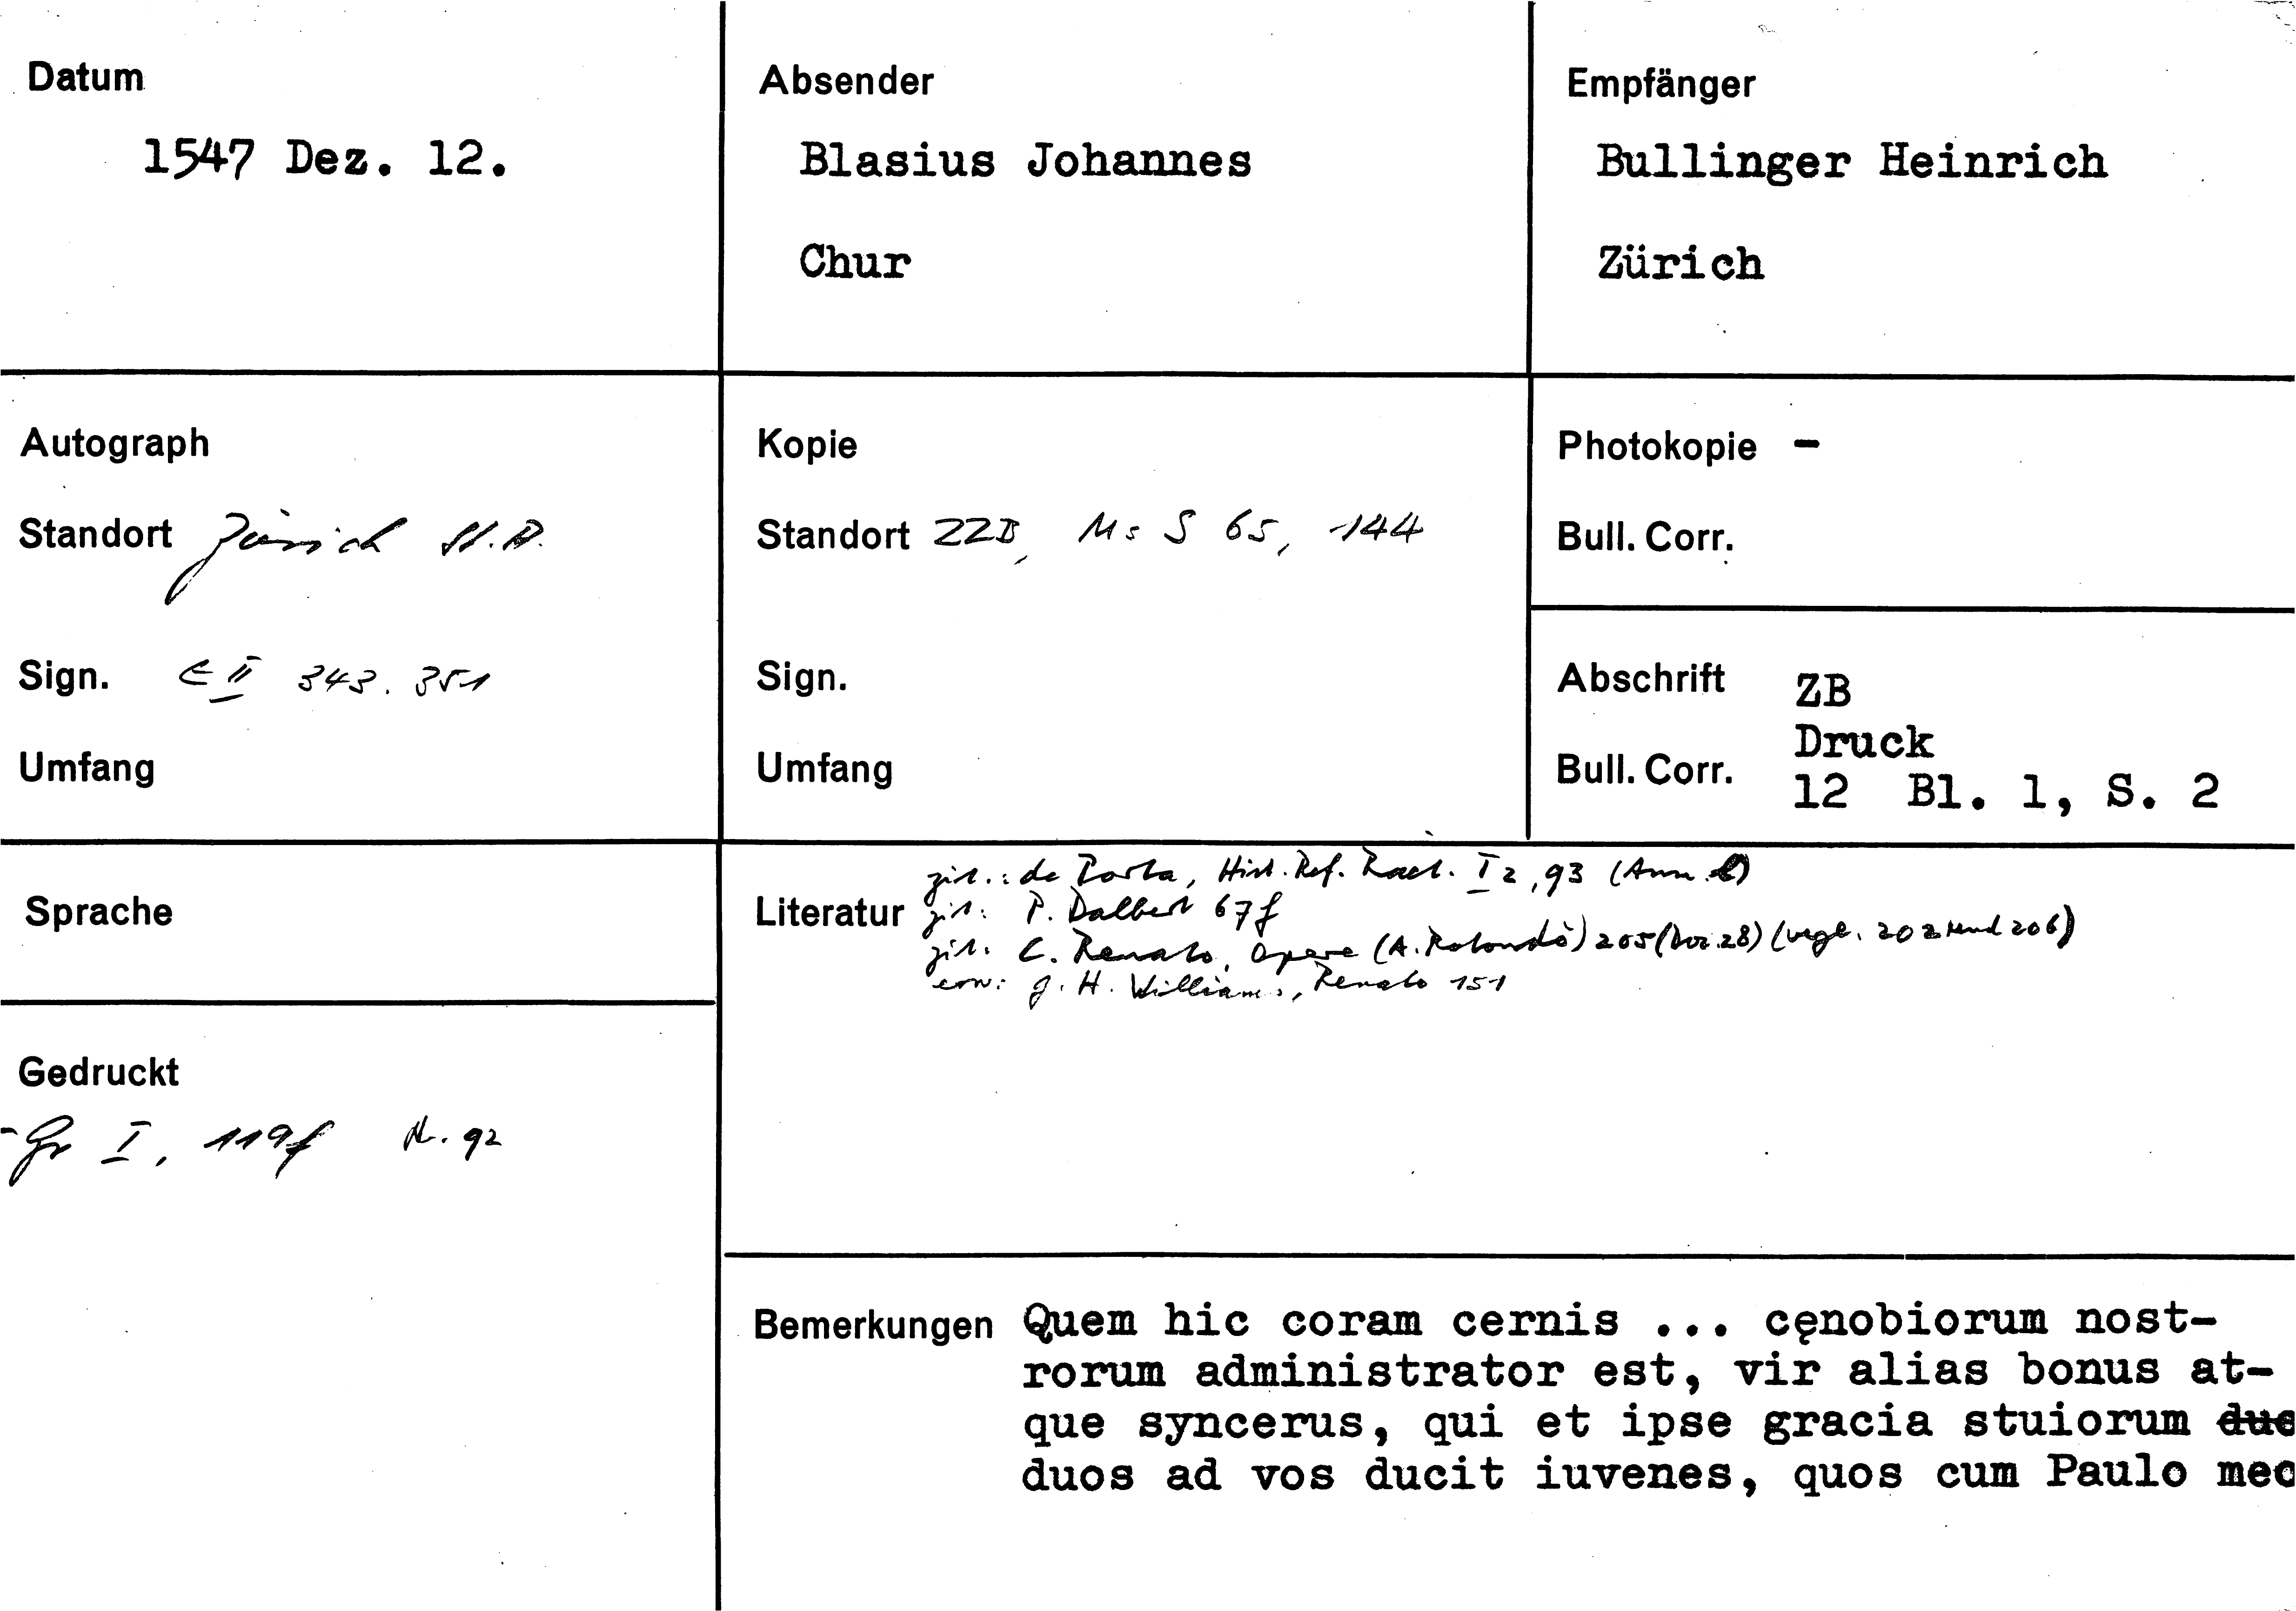 Datum
1547 Dez. 12.
Absender
Blasius Johannes
Chur
Empfänger
Bullinger Heinrich
Zürich
Autograph
Standort Zürich St.A.
Sign. E II 343. 351
Umfang
Kopie
Standort ZZB, Ms S 65, 144
Sign.
Umfang
Photokopie -
Bull. Corr.
Abschrift ZB
Druck
Bull. Corr. 12 Bl. 1, S. 2
Sprache
Gedruckt
- Gr I, 119f Nr. 92
Literatur
zit.: de Porta, Hist. Ref. Raet. I 2, 93 (Anm. )
zit: P. Dalbert 67f
zit: C. Renato, Opere (A. Rotondò) 205 (Doc. 28) (vgl. 202 und 206)
erw: G. H. Williams, Renato 151
Bemerkungen Quem hic coram cernis ... cęnobiorum nost-
rorum administrator est, vir alias bonus at-
que syncerus, qui et ipse gracia stuiorum duc
duos ad vos ducit iuvenes, quos cum Paulo meo